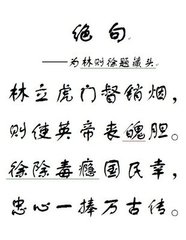 绝句
——为林则徐题藏头
林立虎门督销烟，
则使英帝丧魄胆。
徐除毒瘾国民幸，
忠心一捧万古传。